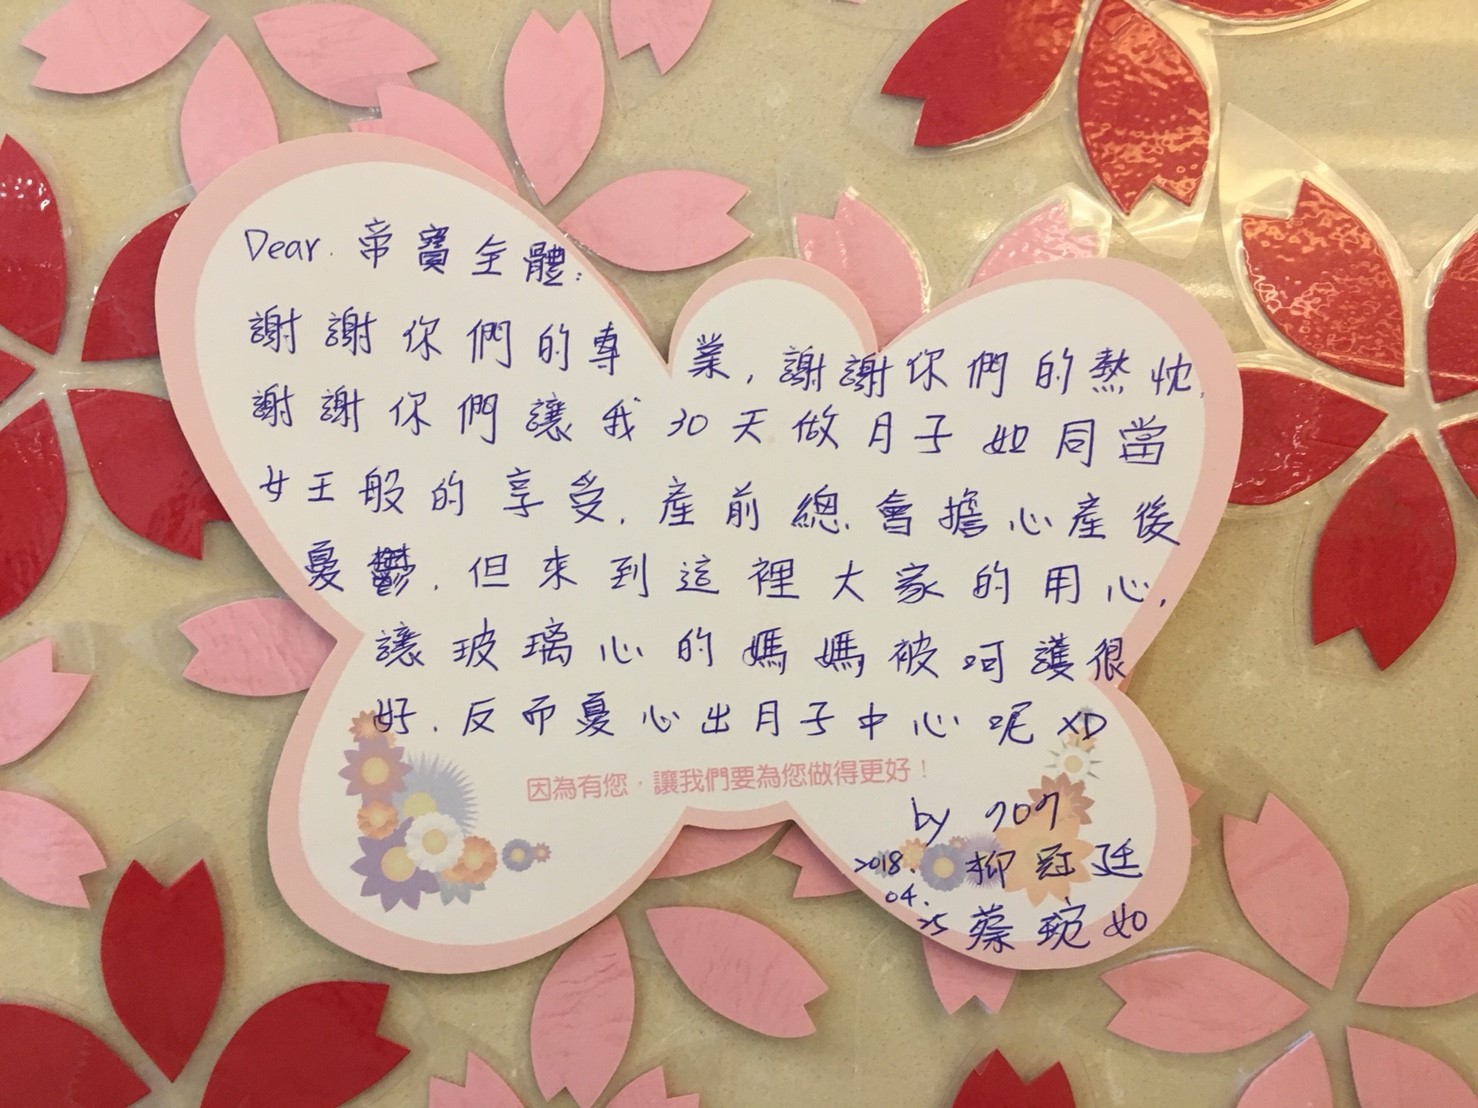 Dear. 帝寶全體：
謝謝你們的專業，謝謝你們的熱忱，
謝謝你們讓我30天做月子如同當
女王般的享受，產前總會擔心產後
憂鬱，但來到這裡大家的用心，
讓玻璃心的媽媽被呵護很
好，反而憂心出月子中心呢 XD
因為有您，讓我們要為您做得更好！
by 707
2018. 柳冠廷
04.
25 蔡琬如